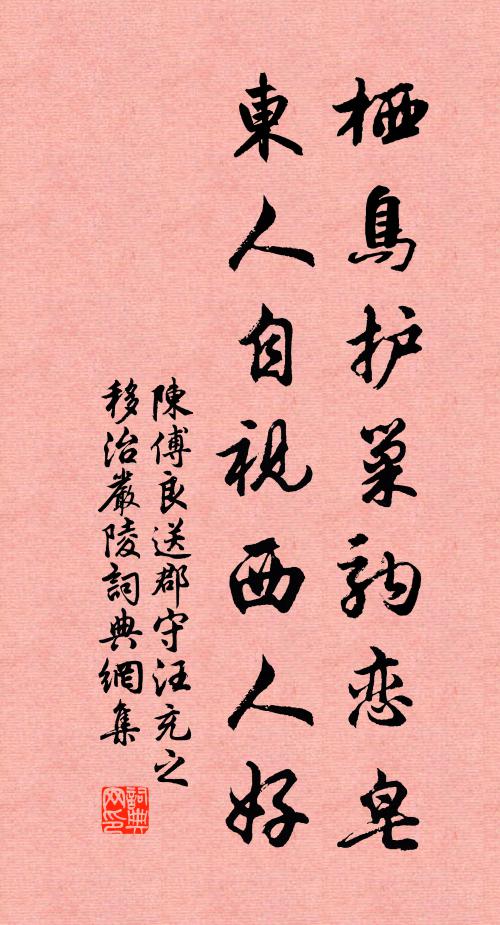 栖鳥护巢駒恋皂
東人自視西人好
陳傅良送郡守汪充之
移治嚴陵詞典網集
詞典网印